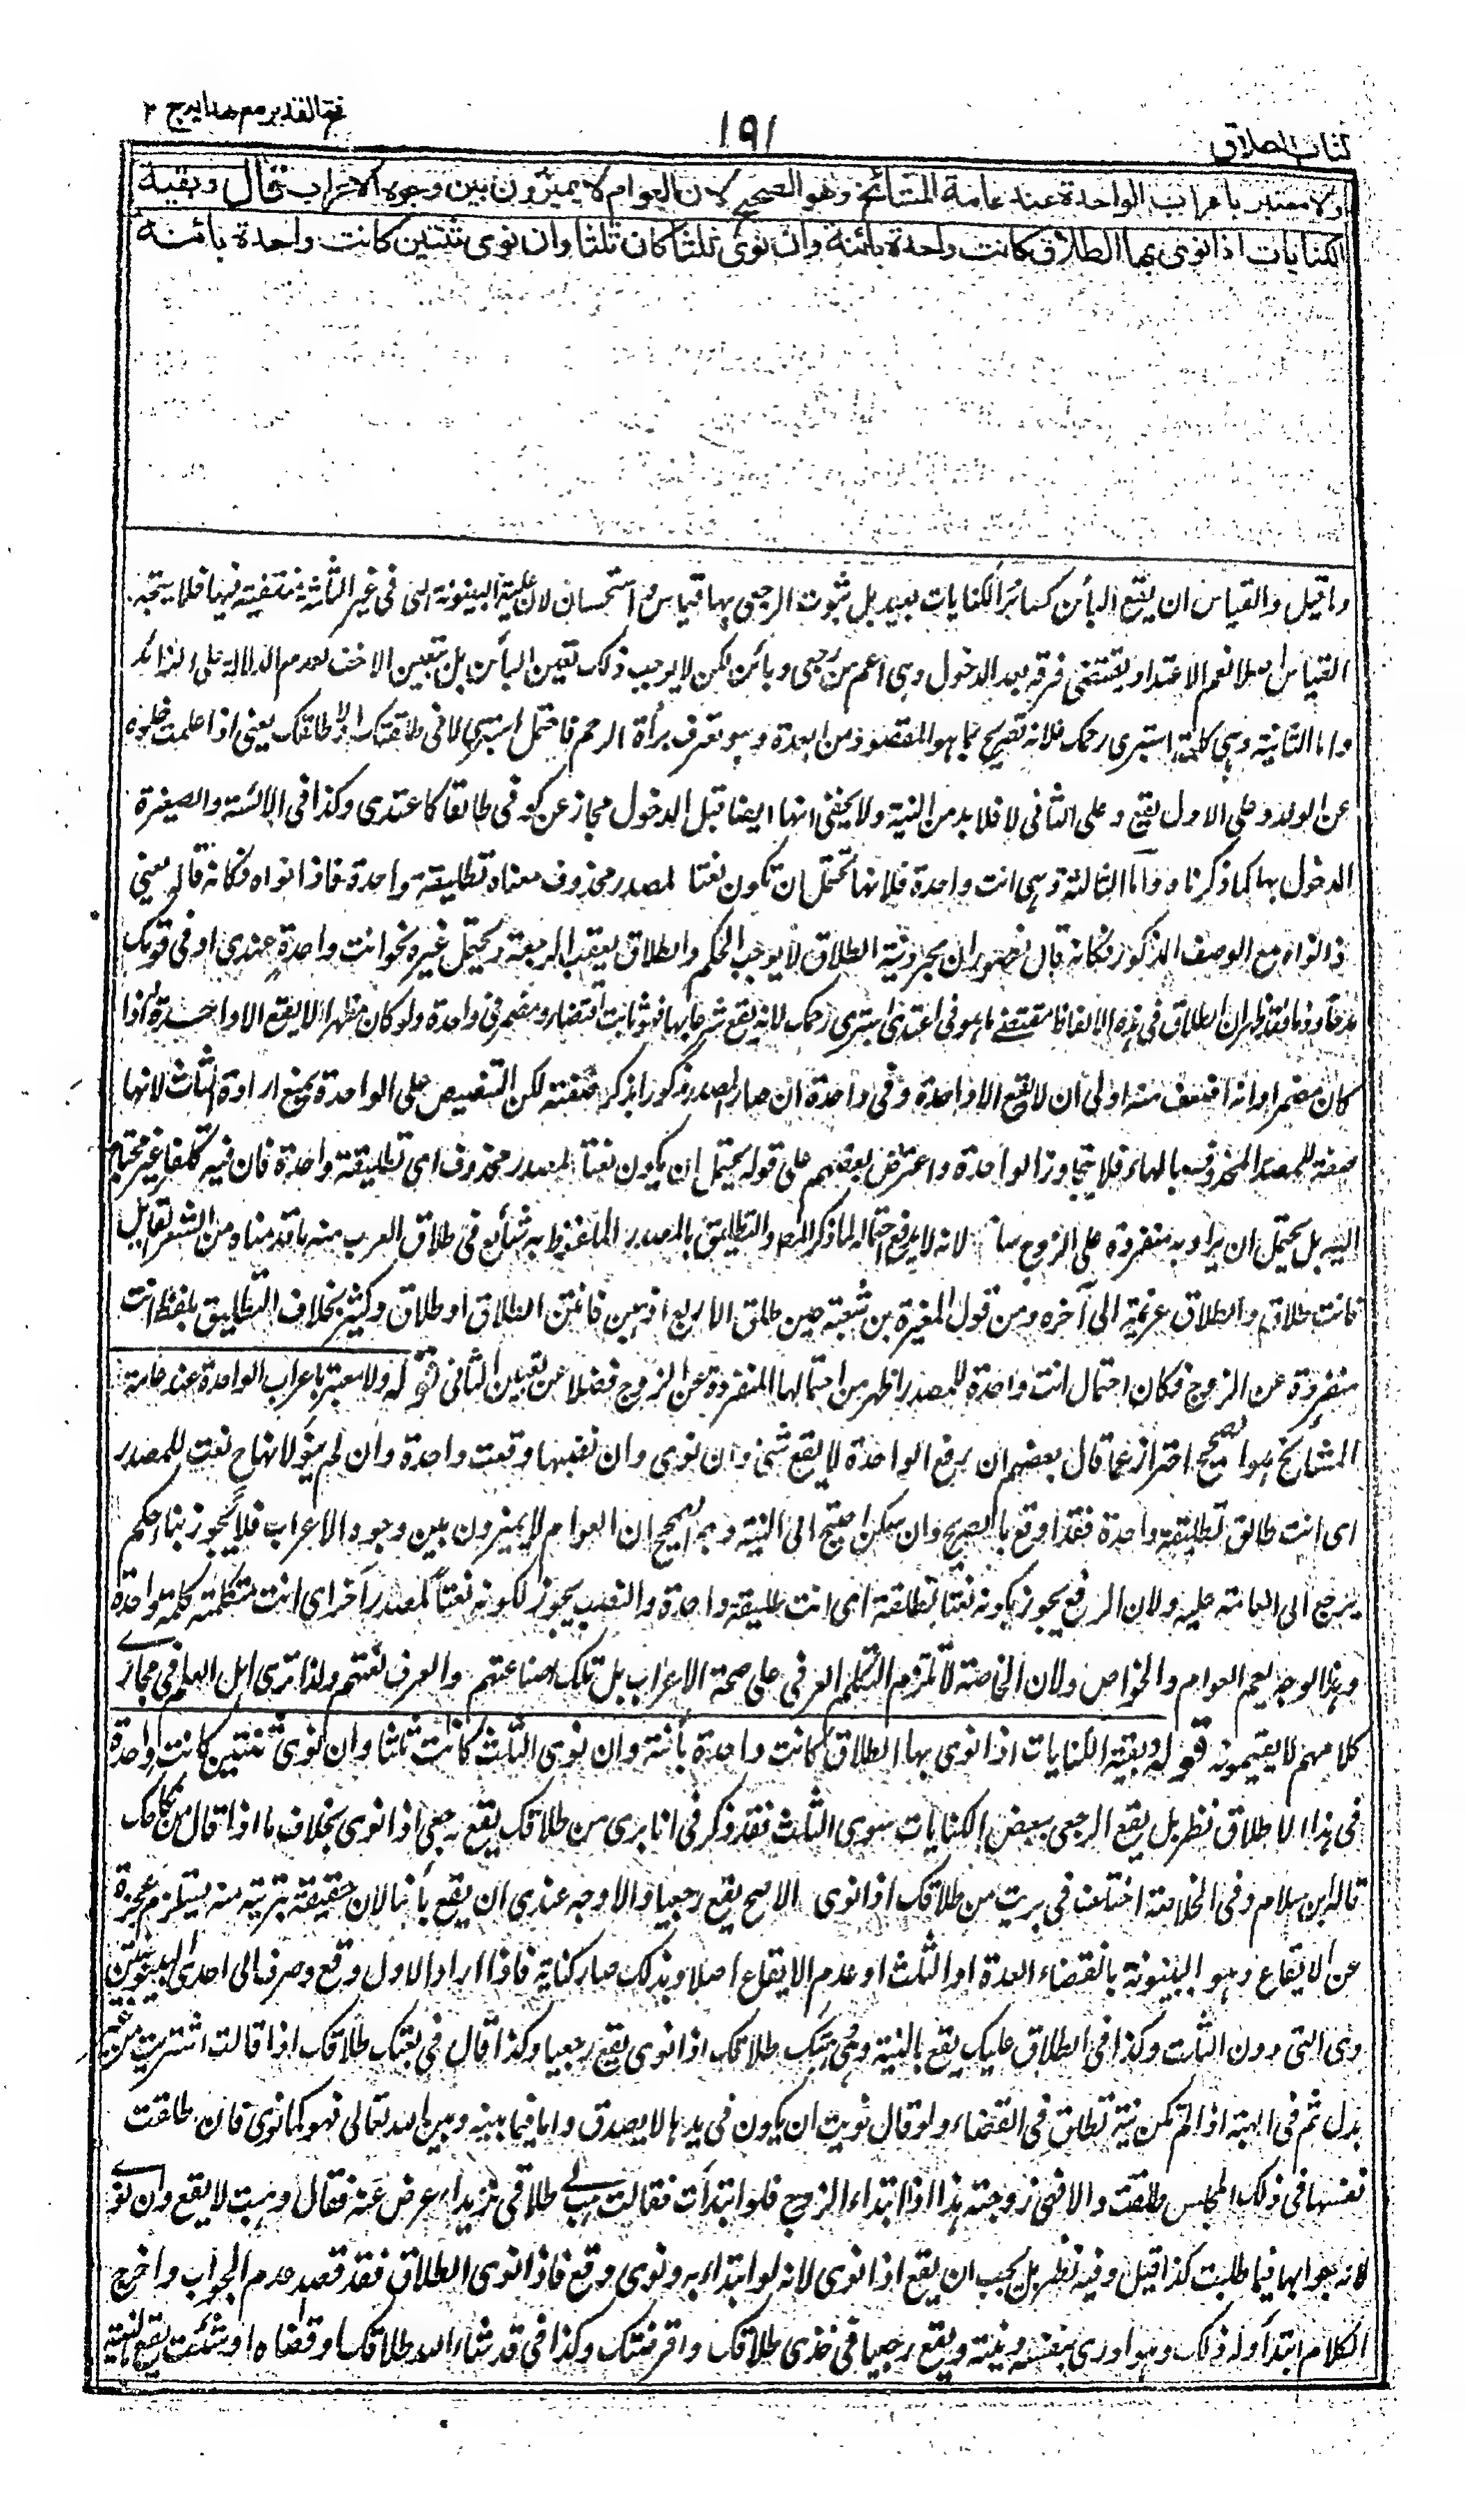 فتح القدير مع هدايه ج ٢
١٩١
كتاب الطلاق
ولا معتبر باعراب الواحدة عند عامة المشائخ وهو الصحيح لان العوام لا يميزون بين وجوه الاعراب قال وبقية
الكنايات اذا نوى بها الطلاق كانت واحدة بائنة وان نوى ثلثا كان ثلثا وان نوى ثنتين كانت واحدة بائنة
وما قيل والقياس ان يقع البائن كسائر الكنايات بعيد بل ثبوت الرجعي بها قياس واستحسان لان علة البينونة التى فى غير الثلثة منتفية فيها فلا يتجه
القياس اصلا نعم الاعتداد يقتضى فرقة بعد الدخول وهى اعم من رجعى وبائن لكن لا يوجب ذلك تعين البائن بل تعين الاخف لعدم الدلالة على الزائد
واما الثانية وهى كلمة استبرى رحمك فلانه تصريح بما هو المقصود من العدة وهو تعرف براءة الرحم فاحتمل استبرى لانى طلقتك او لاطلقك يعنى اذا علمت خلوه
عن الولد وعلى الاول يقع وعلى الثانى لا فلا بد من النية ولا يخفى انها ايضا قبل الدخول مجاز عن كونى طالقا كاعتدى وكذا فى الآئسة والصغيرة
الدخول بها كما ذكرناه واما الثالثة وهى انت واحدة فلانها تحتمل ان تكون نعتا لمصدر محذوف معناه تطليقة واحدة فاذا نواه فكانه قاله يعنى
ذا نواه مع الوصف المذكور فكانه قال لظهور ان مجرد نية الطلاق لا يوجب الحكم والطلاق يعقب الرجعة ويحتمل غيره نحو انت واحدة عندى او فى قومك
مدحا وذما فقد ظهر ان الطلاق فى هذه الالفاظ مقتضى ما هو فى اعتدى استبرى رحمك لانه يقع شرعا بها فهو ثابت اقتضاء ومضمر فى واحدة ولو كان مظهرا لا يقع الا واحدة فاذا
كان مضمرا وانه اضعف منه اولى ان لا يقع الا واحدة وفى واحدة ان صار المصدر مذكورا بذكر صفته لكن التنصيص على الواحدة يمنع ارادة الثلث لانها
صفة للمصدر المحذوف بالهاء فلا يتجاوز الواحدة واعترض بعضهم على قوله يحتمل ان يكون نعتا لمصدر محذوف اى تطليقة واحدة فان فيه تكلفا غير محتاج
اليه بل يحتمل ان يراد به منفردة على الزوج لانه لا يرفع احتماله لما ذكر المصنف والتطليق بالمصدر الملفوظ به شائع فى طلاق العرب منه ما قدمناه من الشعر القائل
فانت طلاق والطلاق عزيمة الى آخره ومن قول المغيرة بن شعبة حين طلق الاربع اذهبن فانتن الطلاق او طلاق وكثير بخلاف التطليق بلفظ انت
منفردة عن الزوج فكان احتمال انت واحدة للمصدر اظهر من احتمالها المنفردة عن الزوج فضلا عن تعيين الثانى قوله ولا معتبر باعراب الواحدة عند عامة
المشائخ هو الصحيح احتراز عما قال بعضهم ان برفع الواحدة لا يقع شئ وان نوى وان نصبها وقعت واحدة وان لم ينو لانها ح نعت للمصدر
اى انت طالق تطليقة واحدة فقد اوقع بالصريح وان سكن احتيج الى النية وجه الصحيح ان العوام لا يميزون بين وجوه الاعراب فلا يجوز بناء حكم
يرجع الى العامة عليه ولان الرفع يجوز لكونه نعتا لتطليقة اى انت تطليقة واحدة والنصب يجوز لكونه نعتا لمصدر آخر اى انت متكلمة كلمة واحدة
وهذا الوجه يعم العوام والخواص ولان الخاصة لا تلتزم التكلم العرفى على صحة الاعراب بل تلك صناعتهم والعرف لغتهم ولذا ترى اهل العلم فى مجارى
كلامهم لا يقيمونه قوله وبقية الكنايات اذا نوى بها الطلاق كانت واحدة بائنة وان نوى الثلث كانت ثلثا وان نوى ثنتين كانت واحدة
فى هذا الاطلاق نظر بل يقع الرجعى ببعض الكنايات سوى الثلث فقد ذكر فى انا برى من طلاقك يقع رجعى اذا نوى بخلاف ما اذا قال من نكاحك
قاله ابن سلام وفى الخلاصة اختلف فى بريت من طلاقك اذا نوى الاصح يقع رجعيا والاوجه عندى ان يقع بائنا لان حقيقة تبريته منه يستلزم عجزه
عن الايقاع وهو البينونة بانقضاء العدة او الثلث او عدم الايقاع اصلا وبذلك صار كناية فاذا اراد الاول وقع وصرف الى احدى البينونتين
وهى التى دون الثلث وكذا فى الطلاق عليك يقع بالنية وفى وهبتك طلاقك اذا نوى يقع رجعيا وكذا قال فى بعتك طلاقك اذا قالت اشتريت من غير
بدل ثم فى الهبة اذا لم تكن نية تطلق فى القضاء ولو قال نويت ان يكون فى يدها لا يصدق واما فيما بينه وبين الله تعالى فهو كما نوى فان طلقت
نفسها فى ذلك المجلس طلقت والا فهى زوجته هذا اذا ابتداء الزوج فلو ابتدأت فقالت هب لى طلاقى تريد اعرض عنه فقال وهبت لا يقع وان نوى
لانه جوابها فيما طلبت كذا قيل وفيه نظر بل يجب ان يقع اذا نوى لانه لو ابتداء به ونوى وقع فاذا نوى الطلاق فقد قصد عدم الجواب واخرج
الكلام ابتداء وله ذلك وهو ادرى بنفسه ونيته ويقع رجعيا فى خذى طلاقك واقرضتك وكذا فى قد شاء الله طلاقك او قضاه او شئت يقع بالنية